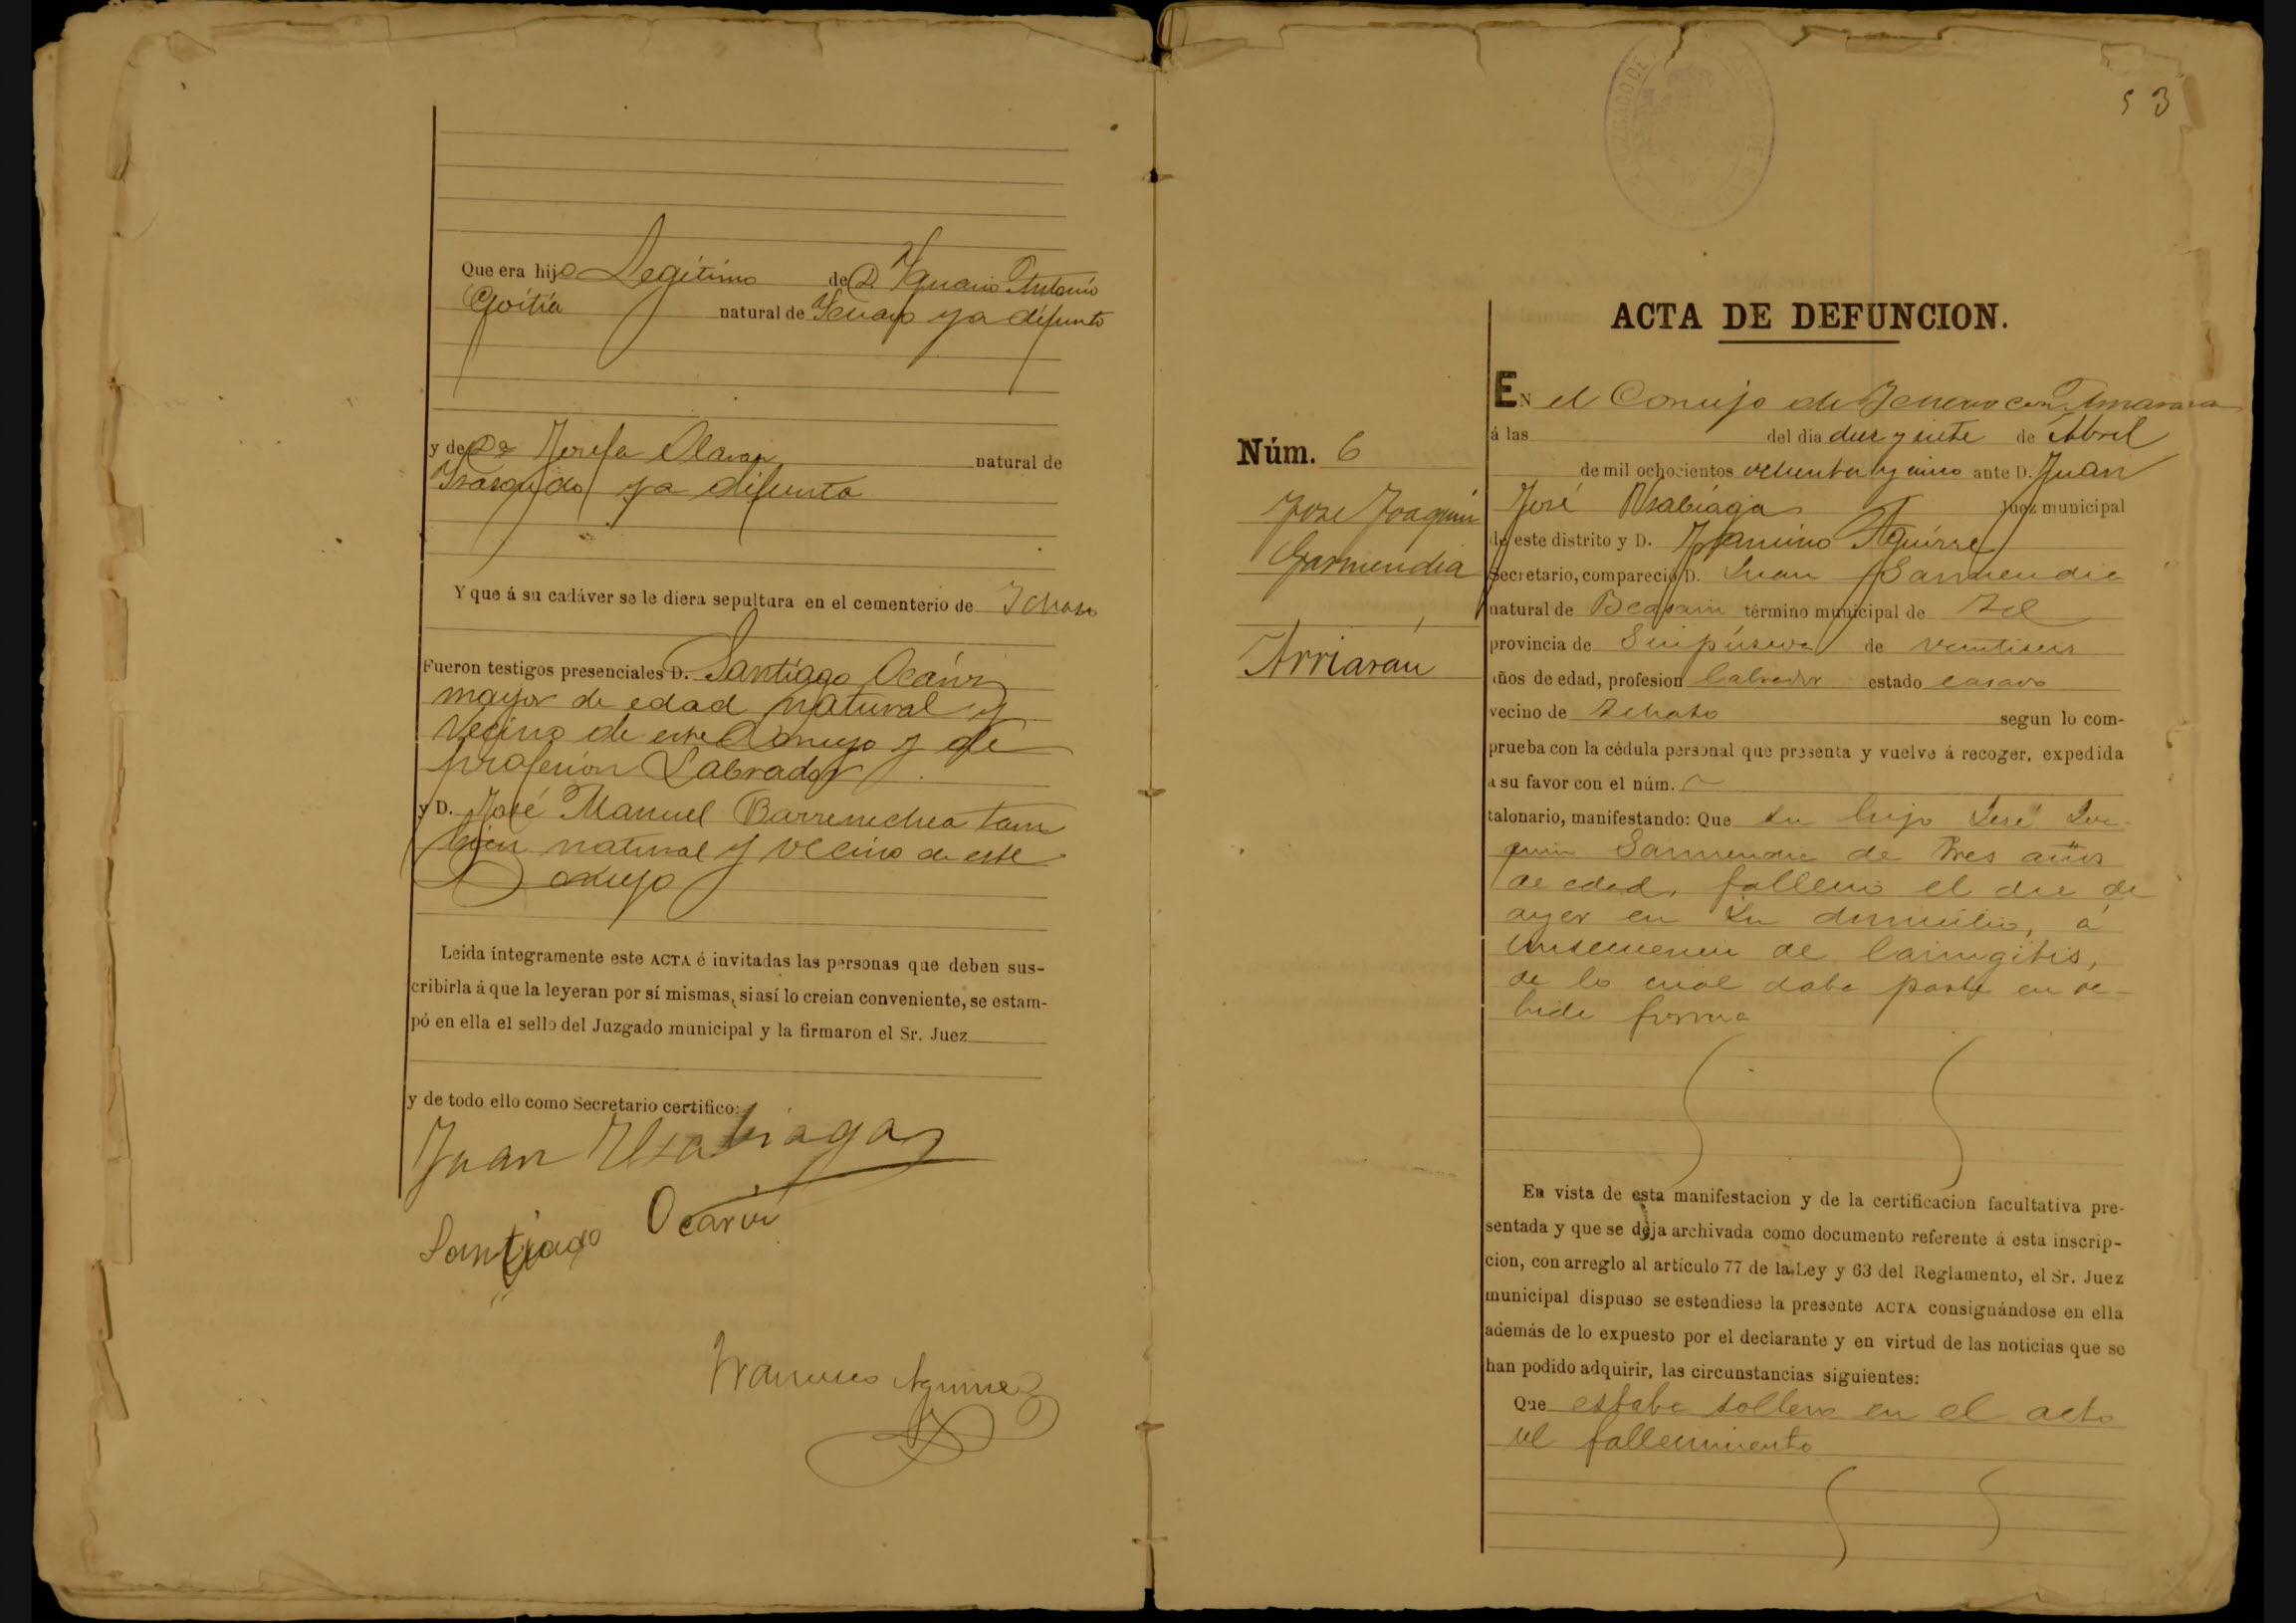 Que era hijo Legítimo de D. Ygnacio Antonio
Goitia natural de Ychaso ya difunto
y de Dª Josefa Olaran natural de
ya difunta
Y que á su cadáver se le diera sepultura en el cementerio de Ichaso
Fueron testigos presenciales D. Santiago Ocariz
mayor de edad natural y
vecino de este Concejo y de
profesion Labrador
y D. José Manuel Barrenechea tam
bien natural y vecino de este
Concejo
Leida íntegramente este ACTA é invitadas las personas que deben sus-
cribirla á que la leyeran por sí mismas, si así lo creian conveniente, se estam-
pó en ella el sello del Juzgado municipal y la firmaron el Sr. Juez
y de todo ello como Secretario certifico:
Juan Usabiaga
Santiago Ocariz
Francisco Aguirre
53
ACTA DE DEFUNCION.
Núm. 6
Jose Joaquin
Garmendia
Arriarán
EN el Concejo de Ichaso con
á las del dia diez y siete de Abril
de mil ochocientos ochenta y cinco ante D. Juan
José Usabiaga Juez municipal
de este distrito y D. Francisco Aguirre
Secretario, compareció D. Juan Garmendia
natural de Beasain término municipal de id
provincia de Guipúzcoa de
años de edad, profesion Labrador estado casado
vecino de Ichaso segun lo com-
prueba con la cédula personal que presenta y vuelve á recoger, expedida
a su favor con el núm.
talonario, manifestando: Que su hijo José Joa-
quin Garmendia de tres años
de edad, falleció el dia de
ayer en su domicilio, á
consecuencia de laringitis,
de lo cual daba parte en de-
bida forma
En vista de esta manifestacion y de la certificacion facultativa pre-
sentada y que se deja archivada como documento referente á esta inscrip-
cion, con arreglo al artículo 77 de la Ley y 63 del Reglamento, el Sr. Juez
municipal dispuso se estendiese la presente ACTA consignándose en ella
además de lo expuesto por el declarante y en virtud de las noticias que se
han podido adquirir, las circunstancias siguientes:
Que estaba soltero en el acto
del fallecimiento